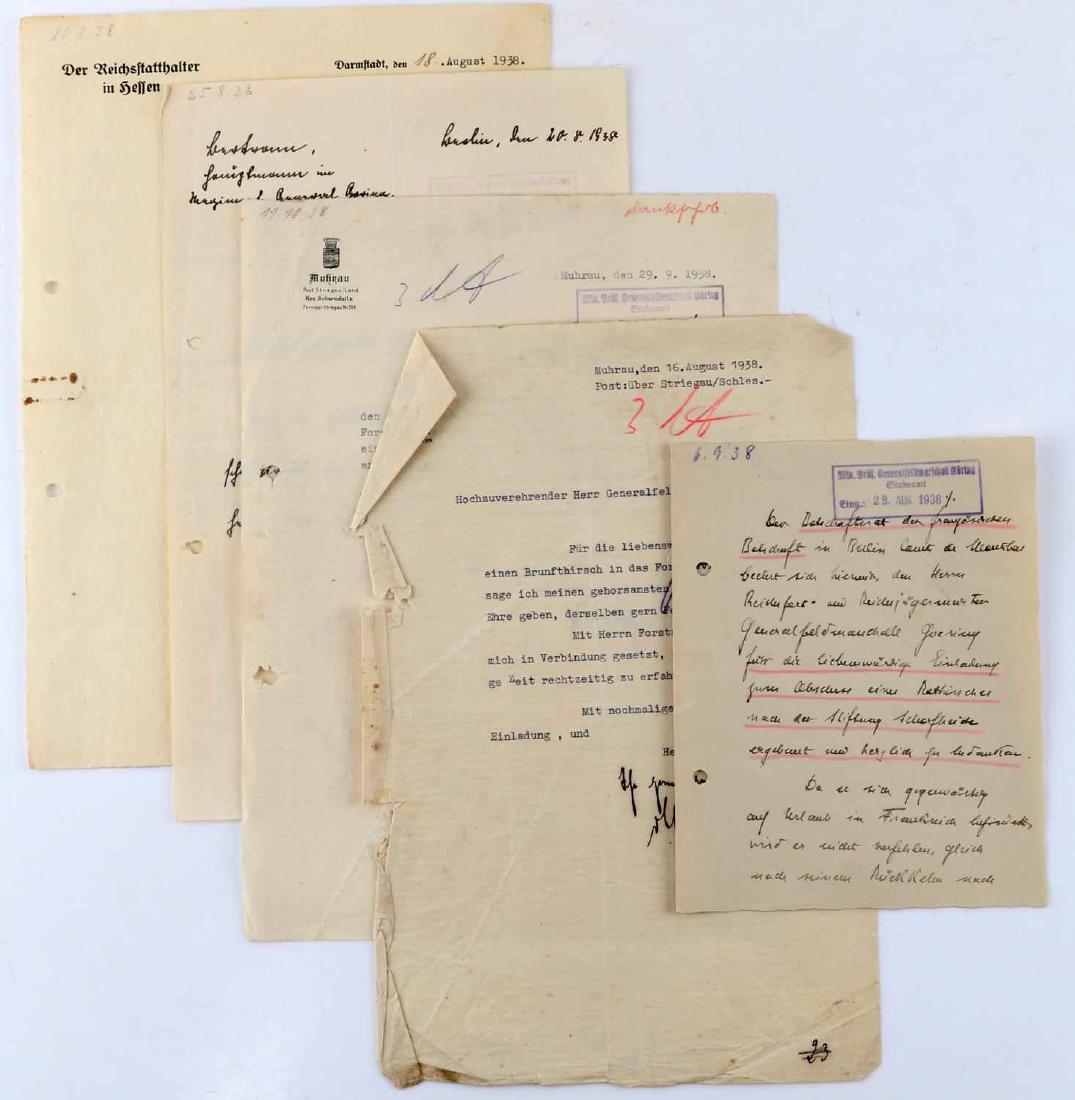 20.8.38
Der Reichsstatthalter
in Hessen
Darmstadt, den 18. August 1938.
25.8.38
Bertram,
Hauptmann im
Berlin, den 20.8.1938
11.10.38
Muhrau
Post Striegau/Land
Muhrau, den 29. 9. 1938.
Min. Präs. Generalfeldmarschall Göring
Stabsamt
den
For
ei
Muhrau,den 16.August 1938.
Post:über Striegau/Schles.-
3
Hochzuverehrender Herr Generalfel
Für die liebensw
einen Brunfthirsch in das For
sage ich meinen gehorsamsten
Ehre geben, derselben gern
Mit Herrn Forst
mich in Verbindung gesetzt,
ge Zeit rechtzeitig zu erfah
Mit nochmalige
Einladung , und
He
23
6.9.38
Min. Präs. Generalfeldmarschall Göring
Stabsamt
Eing.: 29. AUG. 1938
Der Botschaftsrat der französischen
Botschaft in Berlin Comte de
beehrt sich hiermit, dem Herrn
Reichsforst- und Reichsjägermeister
Generalfeldmarschall Goering
für die liebenswürdige Einladung
zum Abschuss eines Rothirsches
nach der Stiftung Schorfheide
ergebenst und herzlich zu bedanken.
Da er sich gegenwärtig
auf Urlaub in Frankreich befindet,
wird er nicht verfehlen, gleich
nach seiner Rückkehr nach